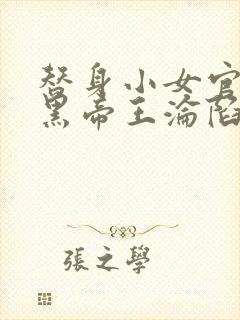 替身小女官
黑帝王淪陷
張之學